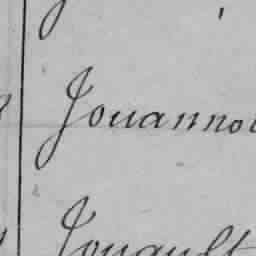 Jouanno
Jouault